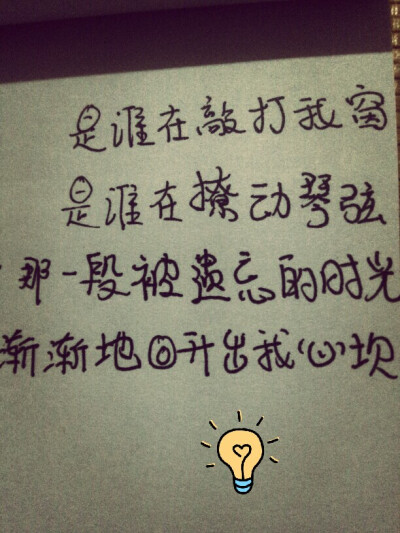 是谁在敲打我窗
是谁在撩动琴弦
那一段被遗忘的时光
渐渐地回升出我心坎